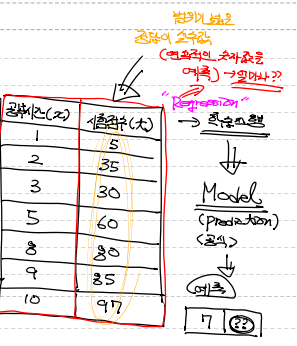 범위가 넓은
정답이 숫자값
(연속적인 숫자값을
예측) → 얼마나??
"Regression"
공부시간(x) 시험점수(t)
1 5
2 35
3 30
5 60
8 80
9 85
10 97
→ 학습진행
Model
(prediction)
(공식)
예측
7 ??